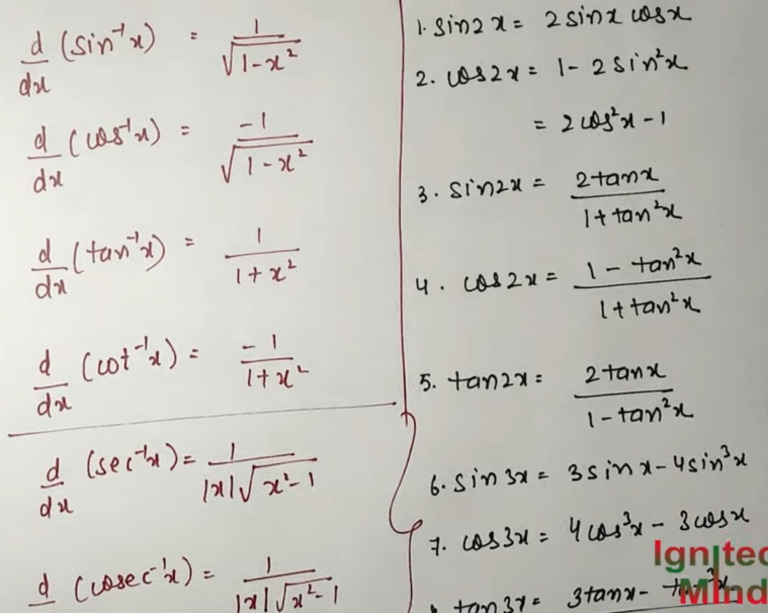 d/dx (sin⁻¹x) = 1/√(1-x²)
d/dx (cos⁻¹x) = -1/√(1-x²)
d/dx (tan⁻¹x) = 1/(1+x²)
d/dx (cot⁻¹x) = -1/(1+x²)
d/dx (sec⁻¹x) = 1/(|x|√(x²-1))
d (cosec⁻¹x) = 1/(|x|√(x²-1))
1. sin2x = 2sinx cosx
2. cos2x = 1 - 2sin²x
= 2cos²x - 1
3. sin2x = 2tanx/(1+tan²x)
4. cos2x = (1 - tan²x)/(1+tan²x)
5. tan2x = 2tanx/(1-tan²x)
6. sin3x = 3sinx - 4sin³x
7. cos3x = 4cos³x - 3cosx
tan3x = 3tanx - tan³x
Ignited
Mind